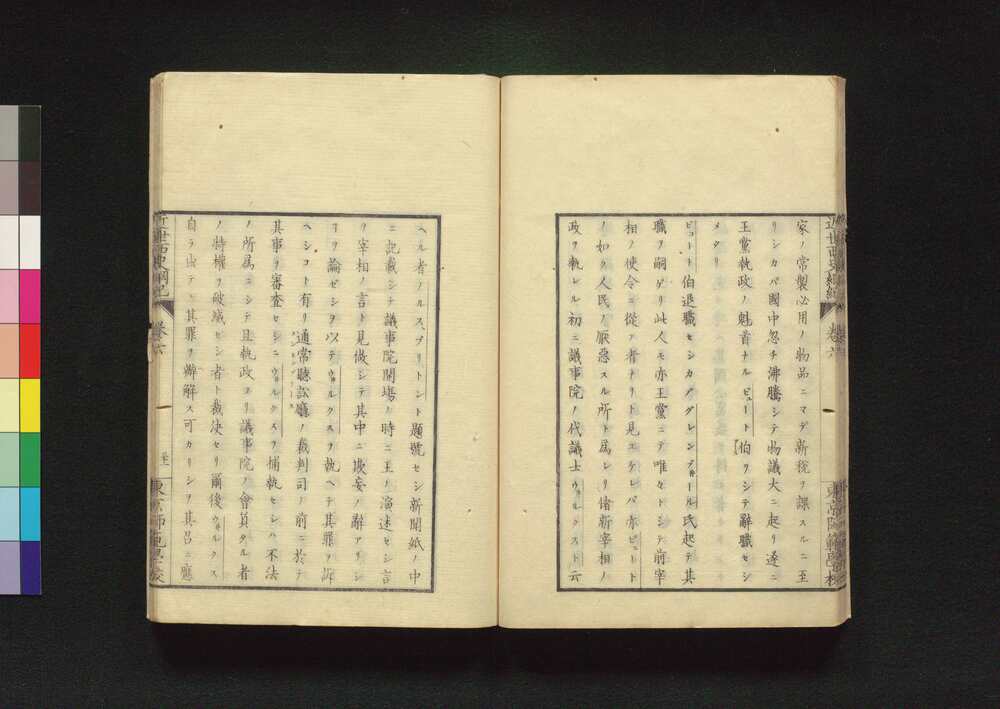 家ノ常製必用ノ物品ニマデ新税ヲ課スルニ至
リシカバ國中忽チ沸騰シテ物議大ニ起リ遂ニ
王黨執政ノ魁首ナルビュート伯ヲシテ辭職セシ
メタリ
ビュート伯退職セシカバグレンヴォール氏起テ其
職ヲ嗣ゲリ此人モ亦王黨ニテ唯々トシテ前宰
相ノ使令ニ從フ者ナリト見エケレバ亦ビュート
ノ如ク人民ノ厭惡スル所ト属レリ偖新宰相ノ
政ヲ執レル初ニ議事院ノ代議士ウォルクスト云
ヘル者ノルス、ブリトント題號セシ新聞紙ノ中
ニ記載シテ議事院開場ノ時ニ王ノ演述セシ言
ヲ宰相ノ言ト見做シテ其中ニ欺妄ノ辭アリシ
ヲ論ゼシヲ以テウォルクスヲ執ヘテ其罪ヲ訴
ヘシコト有リ通常聽訟廳ノ裁判司ノ前ニ於テ
其事ヲ審査セシニウォルクスヲ捕執セシハ不法
ノ所属ニシテ且執政ヨリ議事院ノ會員タル者
ノ特權ヲ破滅セシ者ト裁决セリ爾後ウォルクス
自ラ出テ其罪ヲ辯解ス可カリシヲ其召ニ應
近世西史綱紀
卷六
東京師範學校